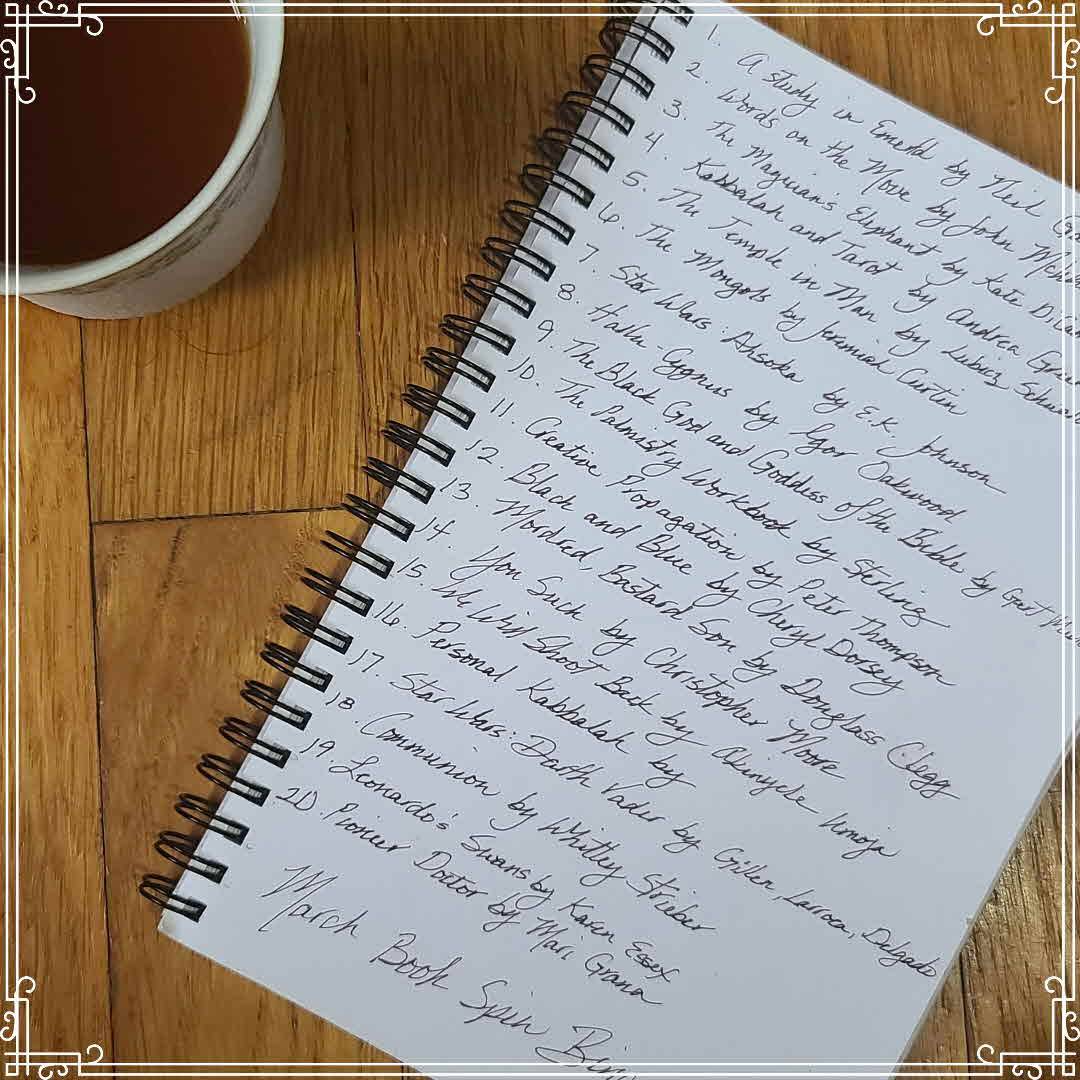 1. A study in Emerald by Neil
2. Words on the Move by John
3. The Magician's Elephant by Kate DiCam
4. Kabbalah and Tarot by Andrea Gree
5. The Temple in Man by Lubicz Schwa
6. The Mongols by Jeremiah Curtin
7. Star Wars: Ahsoka by E.K. Johnson
8. Halu-Cygnus by Igor Oakwood
9. The Black God and Goddess of the Bible by Gert
10. The Palmistry Workbook by Sterling
11. Creative Propagation by Peter Thompson
12. Black and Blue by Cheryl Dorsey
13. Mordred, Bastard Son by Douglass Clegg
14. You Suck by Christopher Moore
15. We Will Shoot Back by Akinyele Umoja
16. Personal Kabbalah by
17. Star Wars: Darth Vader by Gillen, Larroca, Delgado
18. Communion by Whitley Strieber
19. Leonardo's Swans by Karen Essex
20. Pioneer Doctor by Mari Grana
March Book Spin Bin